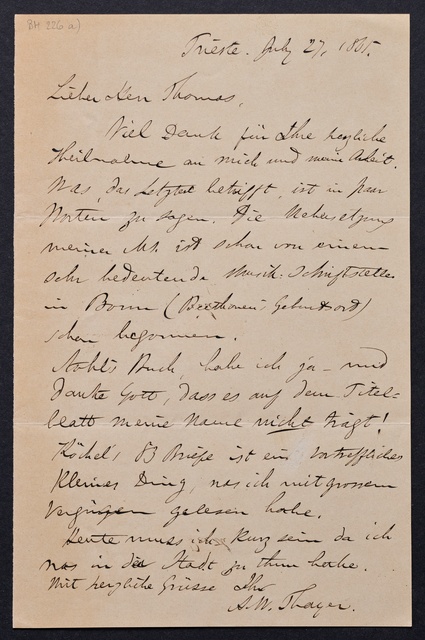 BH 226 a)
Trieste. July 27, 1865.
Lieber Herr Thomas,
Viel Dank für Ihre herzliche
Theilnahme an mich und meine Arbeit.
Was, das Letztere betrifft, ist in paar
Worten zu sagen. Die Uebersetzung
meiner Ms. ist schon von einem
sehr bedeutende Musik-Schriftsteller
in Bonn (Beethoven's Geburtsort)
schon begonnen.
Nohl's Buch, habe ich ja – und
danke Gott, dass es auf dem Titel-
blatt meine Name nicht trägt!
Köchel's 83 Briefe ist ein vortreffliches
kleines Ding, was ich mit grossem
Vergnügen gelesen habe.
Heute muss ich kurz sein da ich
was in der Stadt zu thun habe.
Mit herzliche Grüsse Ihr
A. W. Thayer.